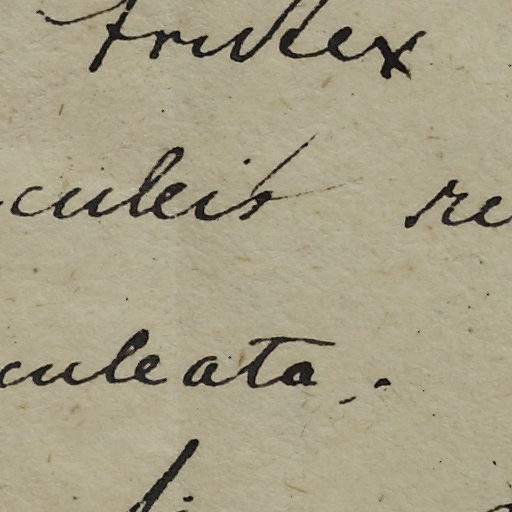 frutex
culeis re
culeata.